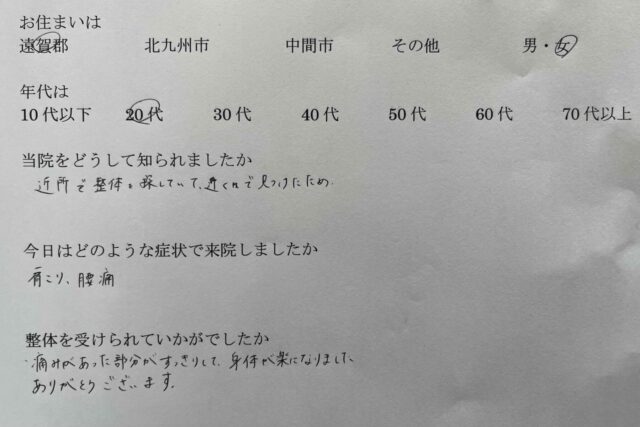 お住まいは
遠賀郡 北九州市 中間市 その他 男・女
年代は
10代以下 20代 30代 40代 50代 60代 70代以上
当院をどうして知られましたか
近所で整体を探していて、近くで見つけたため.
今日はどのような症状で来院しましたか
肩こり、腰痛
整体を受けられていかがでしたか
痛みがあった部分がすっきりして、身体が楽になりました。
ありがとうございます。